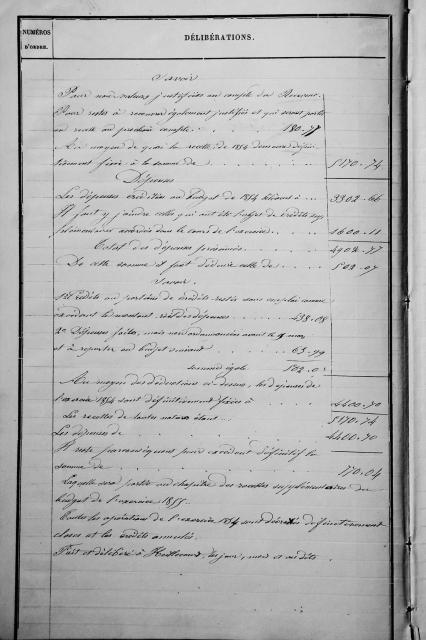 NUMÉROS
D'ORDRE.
DÉLIBÉRATIONS.
Savoir
Pour non valeurs justifiées au compte du Receveur.
Pour restes à recouvrer également justifiés et qui seront portés
en recette au prochain compte. 180.77
Au moyen de quoi la recette de 1854 demeure défini-
tivement fixée à la somme de 5170.74
Dépenses
Les dépenses créditées au budget de 1854 s'élèvent à 3302.66
Il faut y joindre celles qui ont été l'objet de crédits sup-
plémentaires accordés dans le cours de l'exercice. 1600.11
Total des dépenses présumées. 4902.77
De cette somme il faut déduire celle de 502.07
Savoir.
1° Crédits ou portions de crédits restés sans emploi comme
excédant le montant réel des dépenses 438.08
2° Dépenses faites, mais non ordonnancées avant le mars
et à reporter au budget suivant 63.99
somme égale 502.0
Au moyen des déductions ci-dessus, les dépenses de
l'exercice 1854 sont définitivement fixées à 4400.70
Les recettes de toutes natures étant 5170.74
Les dépenses de 4400.70
Il reste par conséquent pour excédent définitif la
somme de 770.04
Laquelle sera portée au chapitre des recettes supplémentaires du
budget de l'exercice 1855.
Toutes les opérations de l'exercice 1854 sont déclarées définitivement
closes et les crédits annulés.
Fait et délibéré à les jour, mois et an dits.